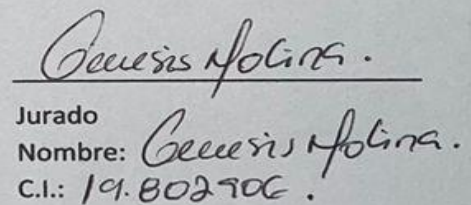 Genesis Molina.
Jurado
Nombre: Genesis Molina.
C.I.: 19.802906.